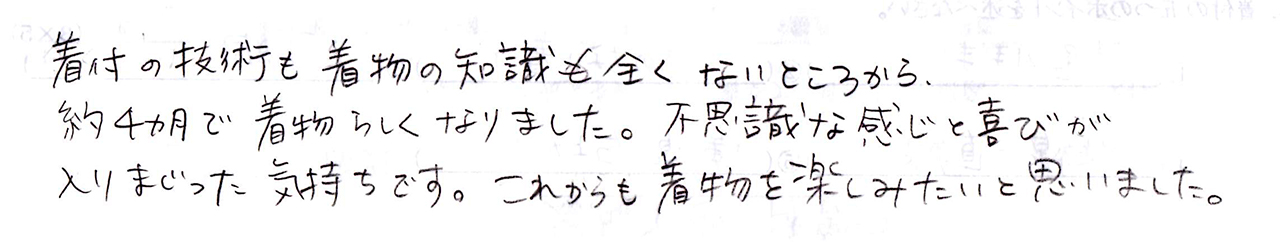 着付の技術も着物の知識も全くないところから、
約4カ月で着物らしくなりました。不思議な感じと喜びが
入りまじった気持ちです。これからも着物を楽しみたいと思いました。